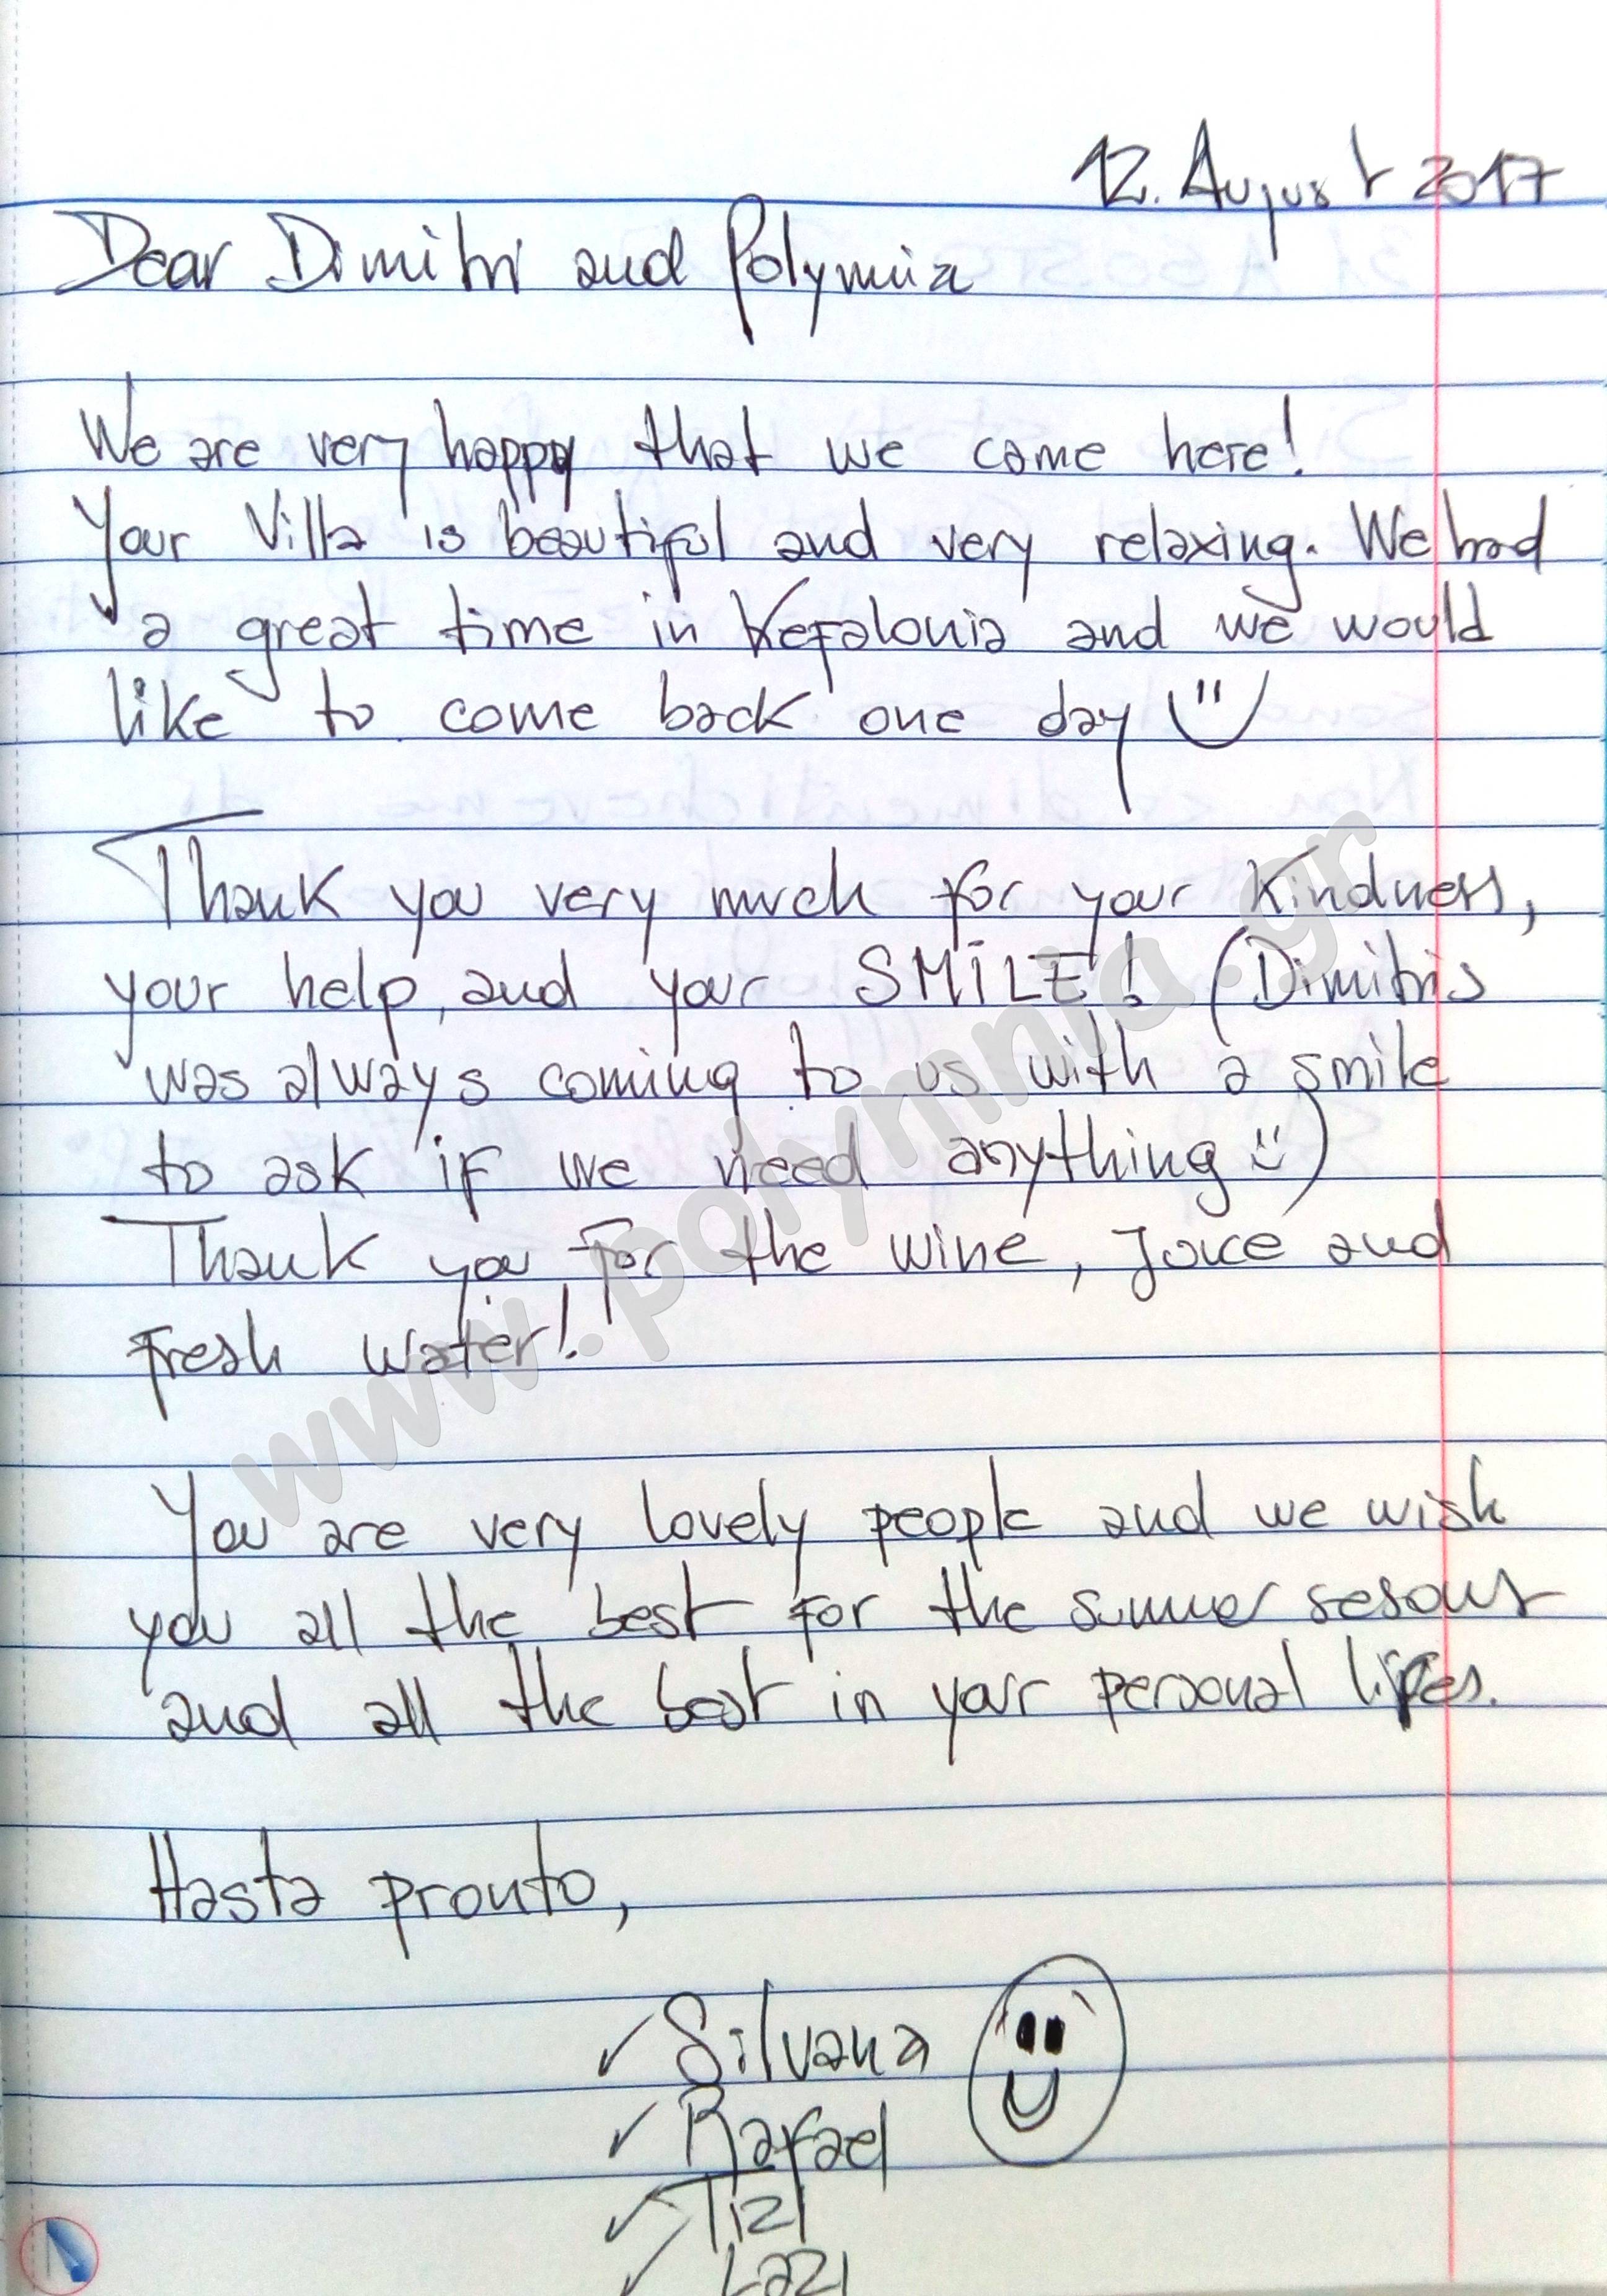 12. August 2017
Dear Dimitri and Polymnia
We are very happy that we came here!
Your Villa is beautiful and very relaxing. We had
a great time in Kefalonia and we would
like to come back one day
Thank you very much for your kindness,
your help, and your SMILE! (Dimitris
was always coming to us with a smile
to ask if we need anything :))
Thank you for the wine, Juice and
Fresh water!
You are very lovely people and we wish
you all the best for the summer
and all the best in your personal lifes.
Hasta pronto,
✓ Silvana
✓ Rafael
✓ Tizi
www.polymnia.gr